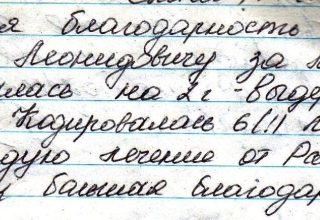 я благодарность
Леонидовичу за
илась на 2 г - Выдер
Кодировалась 6/II
дую лечение от Ра
большая благодар